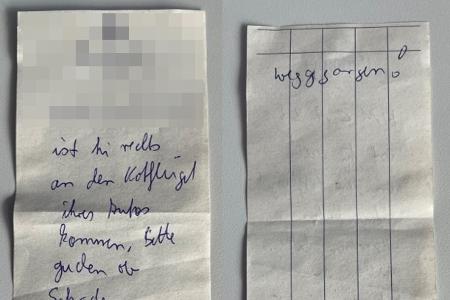 ist hi rechts
an den Kotflügel
ihres Autos
kommen, bitte
gucken ob
Schade
weggegangen